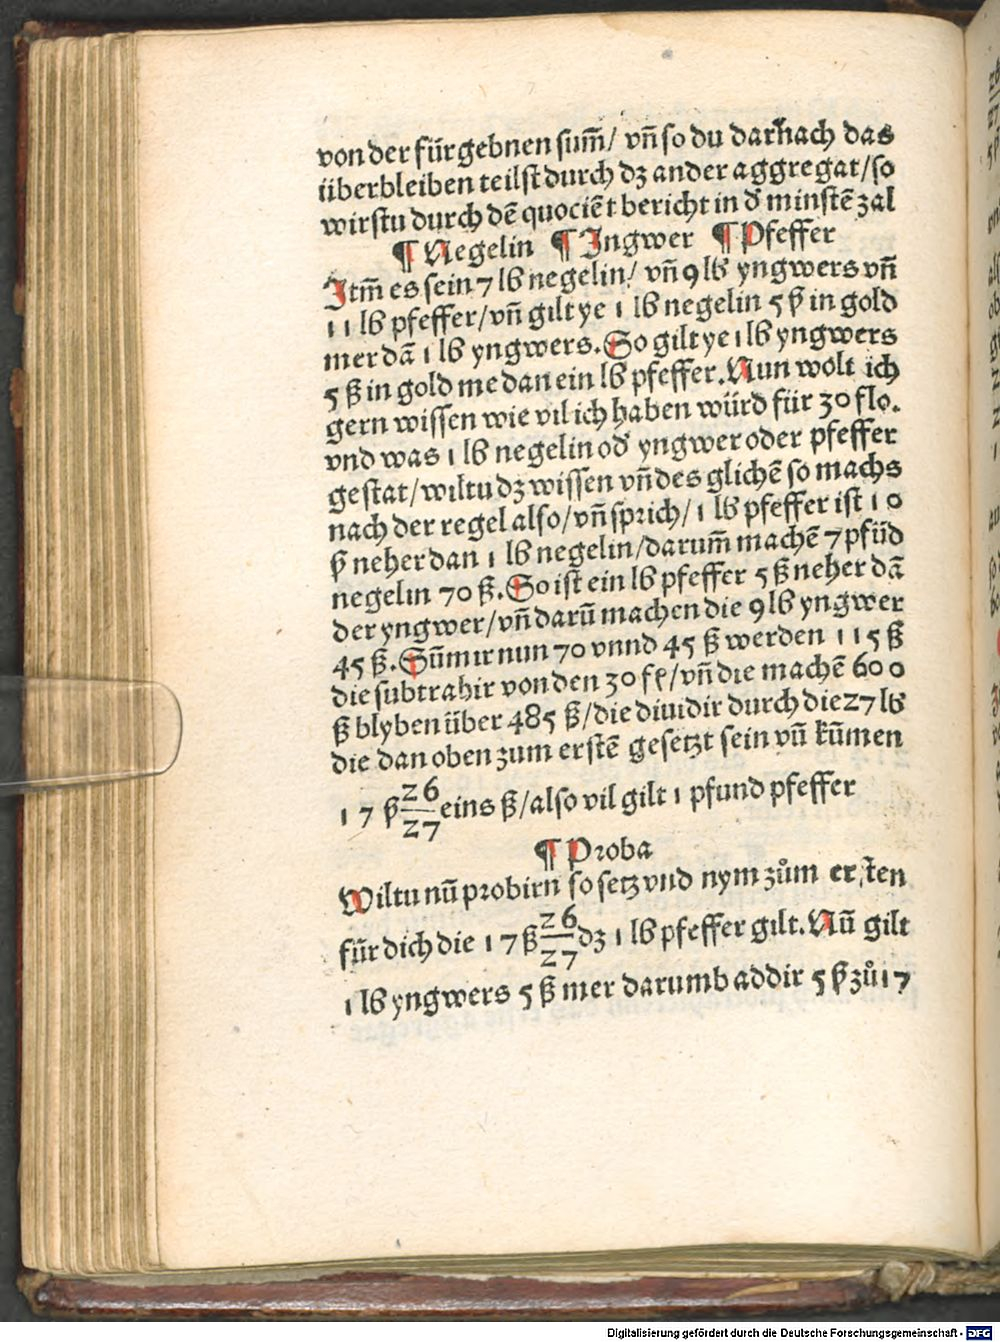 von der fürgebnen sum̄/ vn̄ so du darnach das
überbleiben teilst durch dz ander aggregat/so
wirstu durch dē quociēt bericht in d̕ minstē zal
¶ Negelin ¶ Ingwer ¶ Pfeffer
Itm̄ es sein 7 lb negelin/ vn̄ 9 lb yngwers vn̄
11 lb pfeffer/vn̄ gilt ye 1 lb negelin 5 ß in gold
mer dā 1 lb yngwers. So gilt ye 1 lb yngwers
5 ß in gold me dan ein lb pfeffer. Nun wolt ich
gern wissen wie vil ich haben würd für 30 flo.
vnd was 1 lb negelin od̕ yngwer oder pfeffer
gestat/wiltu dz wissen vn̄ des glichē so machs
nach der regel also/vn̄ sprich/1 lb pfeffer ist 10
ß neher dan 1 lb negelin/darum̄ machē 7 pfūd
negelin 70 ß. So ist ein lb pfeffer 5 ß neher dā
der yngwer/vn̄ darū machen die 9 lb yngwer
45 ß. Sūmir nun 70 vnnd 45 ß werden 115 ß
die subtrahir von den 30 fl/vn̄ die machē 600
ß blyben über 485 ß/die diuidir durch die 27 lb
die dan oben zum erstē gesetzt sein vn̄ kūmen
17 ß 26/27 eins ß/also vil gilt 1 pfund pfeffer
¶ Proba
Wiltu nū probirn so setz vnd nym zům ersten
für dich die 17 ß 26/27 dz 1 lb pfeffer gilt. Nū gilt
1 lb yngwers 5 ß mer darumb addir 5 ß zů 17
Digitalisierung gefördert durch die Deutsche Forschungsgemeinschaft - DFG